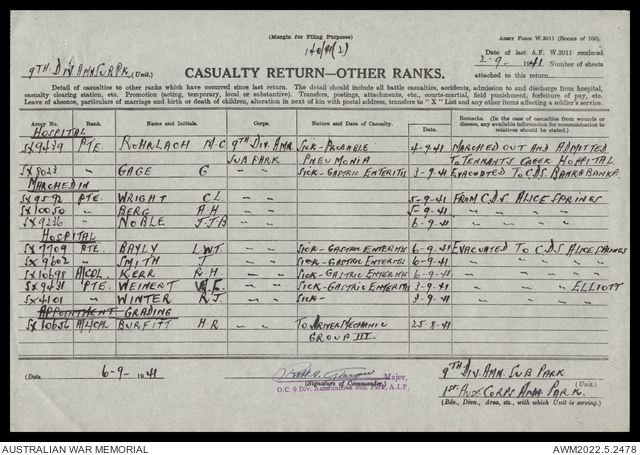 (Margin for Filing Purposes)
ARMY FORM W.3011 (Books of 100).
9TH DIV AMN SUB PK (Unit.)
Date of last A.F. W.3011 rendered
2-9- 1941 Number of sheets
attached to this return
CASUALTY RETURN—OTHER RANKS.
Detail of casualties to other ranks which have occurred since last return. The detail should include all battle casualties, accidents, admission to and discharge from hospital,
casualty clearing station, etc. Promotion (acting, temporary, local or substantive). Transfers, postings, attachments, etc., courts-martial, field punishment, forfeiture of pay, etc.
Leave of absence, particulars of marriage and birth or death of children, alteration in next of kin with postal address, transfers to "X" List and any other items affecting a soldier's service.
Army No. Rank. Name and Initials. Corps. Nature and Date of Casualty. Date. Remarks. (In the case of casualties from wounds or disease, any available information for communication to relatives should be stated.)
HOSPITAL
SX9439 PTE. ROHRLACH M.C. 9TH DIV. AMN SICK-PROBABLE 4-9-41 MARCHED OUT AND ADMITTED
SUB PARK PNEUMONIA TO TENNANTS CREEK HOSPITAL
SX8023 " GAGE G " " SICK-GASTRIC ENTERITIS 3-9-41 EVACUATED TO C.D.S. BANKA BANKA
MARCHED IN
SX9592 PTE. WRIGHT C.L. " " 5-9-41 FROM C.D.S. ALICE SPRINGS
SX10050 " BERG A.H " " 5-9-41 " " " "
SX9236 " NOBLE J.J.B " " 6-9-41 " " " "
HOSPITAL
SX7709 PTE. BAYLY L.W.T. " " SICK-GASTRIC ENTERITIS 6-9-41 EVACUATED TO C.D.S ALICE SPRINGS
SX9602 " SMITH J " " SICK-GASTRIC ENTERITIS 6-9-41 " " " " "
SX10698 A/CPL. KERR R.H " " SICK-GASTRIC ENTERITIS 6-9-41 " " " " "
SX9431 PTE. WEINERT " " SICK-GASTRIC ENTERITIS 3-9-41 " " " ELLIOTT
SX4101 " WINTER R.J " " SICK- 3-9-41 " " " "
APPOINTMENT GRADING
SX10656 A/L/CPL BURFITT H.R " " TO DRIVER MECHANIC 25-8-41
GROUP III.
(Date 6-9- 1941
(Signature of Commander.) Major,
O.C. 9 Div. Ammunition Sub. Park, A.I.F.
9TH DIV. AMN. SUB PARK
(Unit.)
1ST AUX. CORPS AMN PARK.
(Bde., Divn., Area, etc., with which Unit is serving.)
AUSTRALIAN WAR MEMORIAL
AWM2022.5.2478